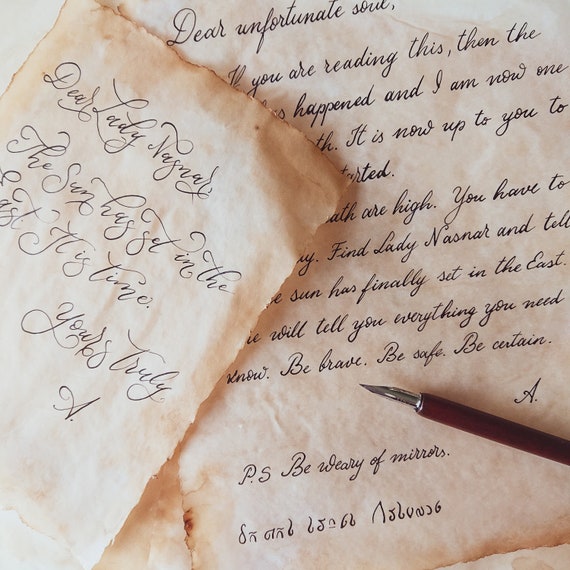 Dear Lady Nasnar,
The Sun has set in the
East. It is time.
Yours Truly
A.
Dear unfortunate soul,
If you are reading this, then the
has happened and I am now one
It is now up to you to
are high. You have to
Find Lady Nasnar and tell
sun has finally set in the East.
will tell you everything you need
know. Be brave. Be safe. Be certain.
A.
P.S Be weary of mirrors.